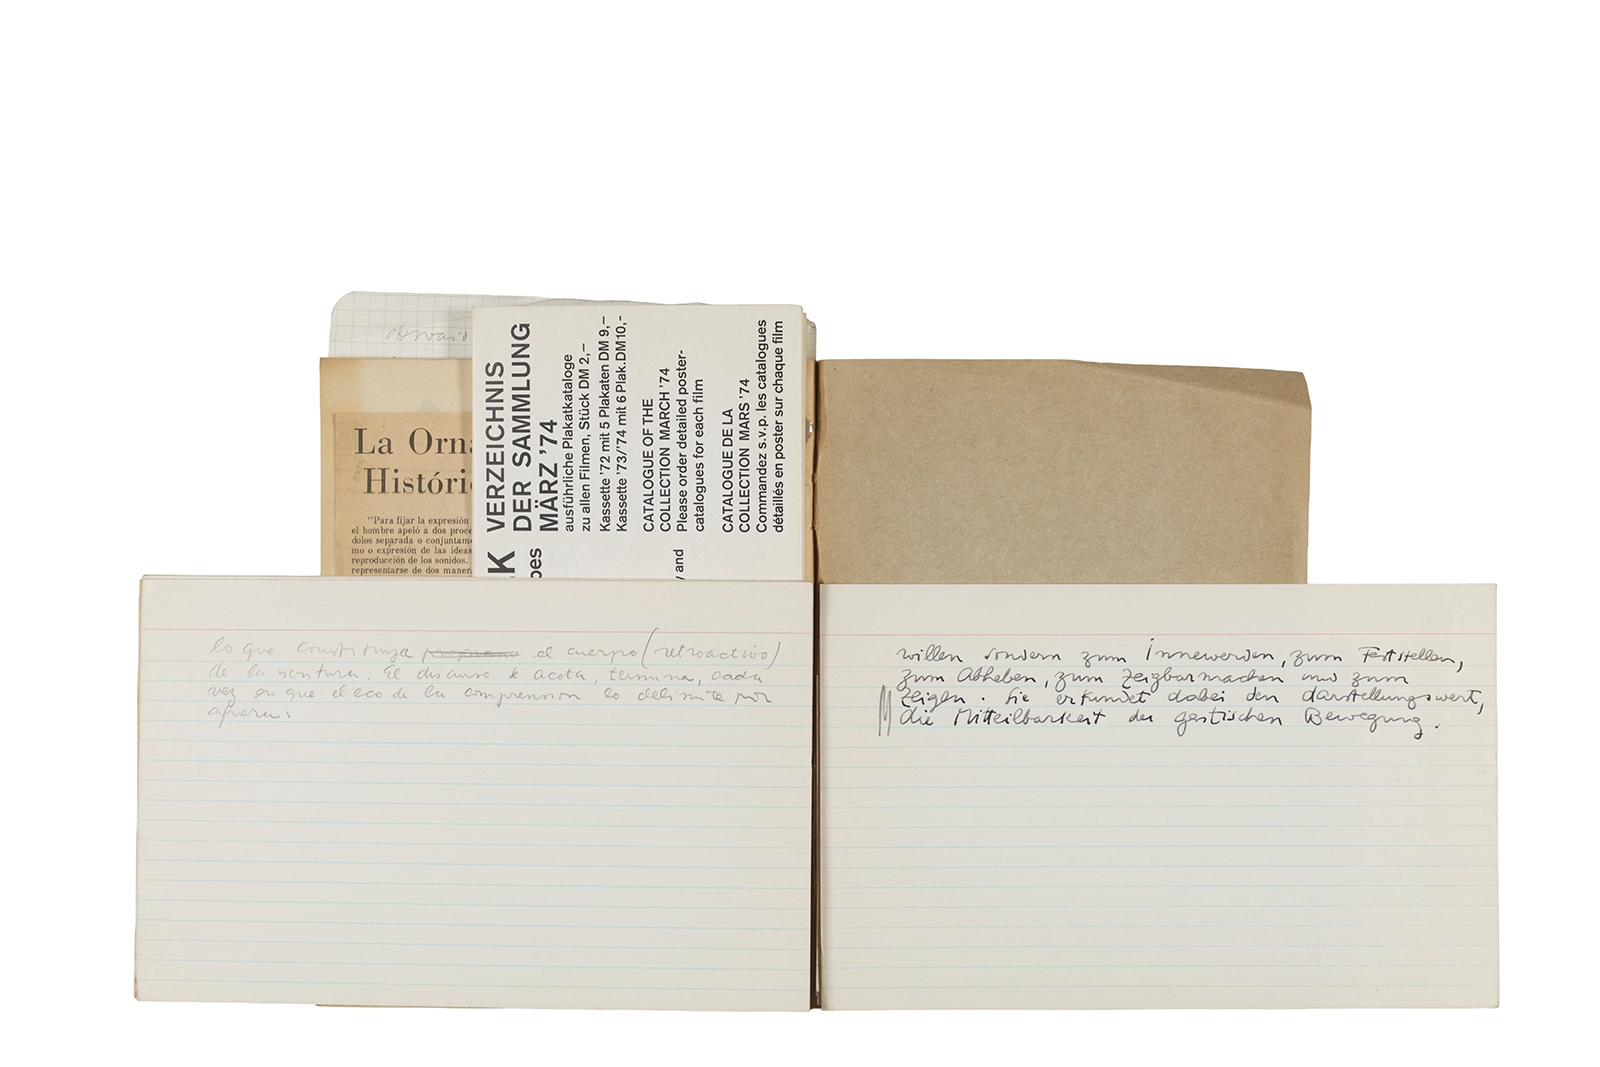 La Orn
Históri
"Para fijar la expresión
el hombre apeló a dos proce
dolos separada o conjuntame
mo o expresión de las ideas
reproducción de los sonidos.
representarse de dos maner
K VERZEICHNIS
DER SAMMLUNG
pes MÄRZ '74
ausführliche Plakatkataloge
zu allen Filmen, Stück DM 2,–
Kassette '72 mit 5 Plakaten DM 9,–
Kassette '73/'74 mit 6 Plak.DM10,–
CATALOGUE OF THE
COLLECTION MARCH '74
y and Please order detailed poster-
catalogues for each film
CATALOGUE DE LA
COLLECTION MARS '74
Commandez s.v.p. les catalogues
détaillés en poster sur chaque film
lo que constituye el cuerpo (retroactivo)
de la escritura. El discurso acota, termina, cada
vez en que el eco de la comprension lo delimita por
afuera:
willen sondern zum Innewerden, zum Feststellen,
zum Abheben, zum Zeigbarmachen und zum
Zeigen. Sie erkundet dabei den Darstellungswert,
die Mitteilbarkeit der gestischen Bewegung.